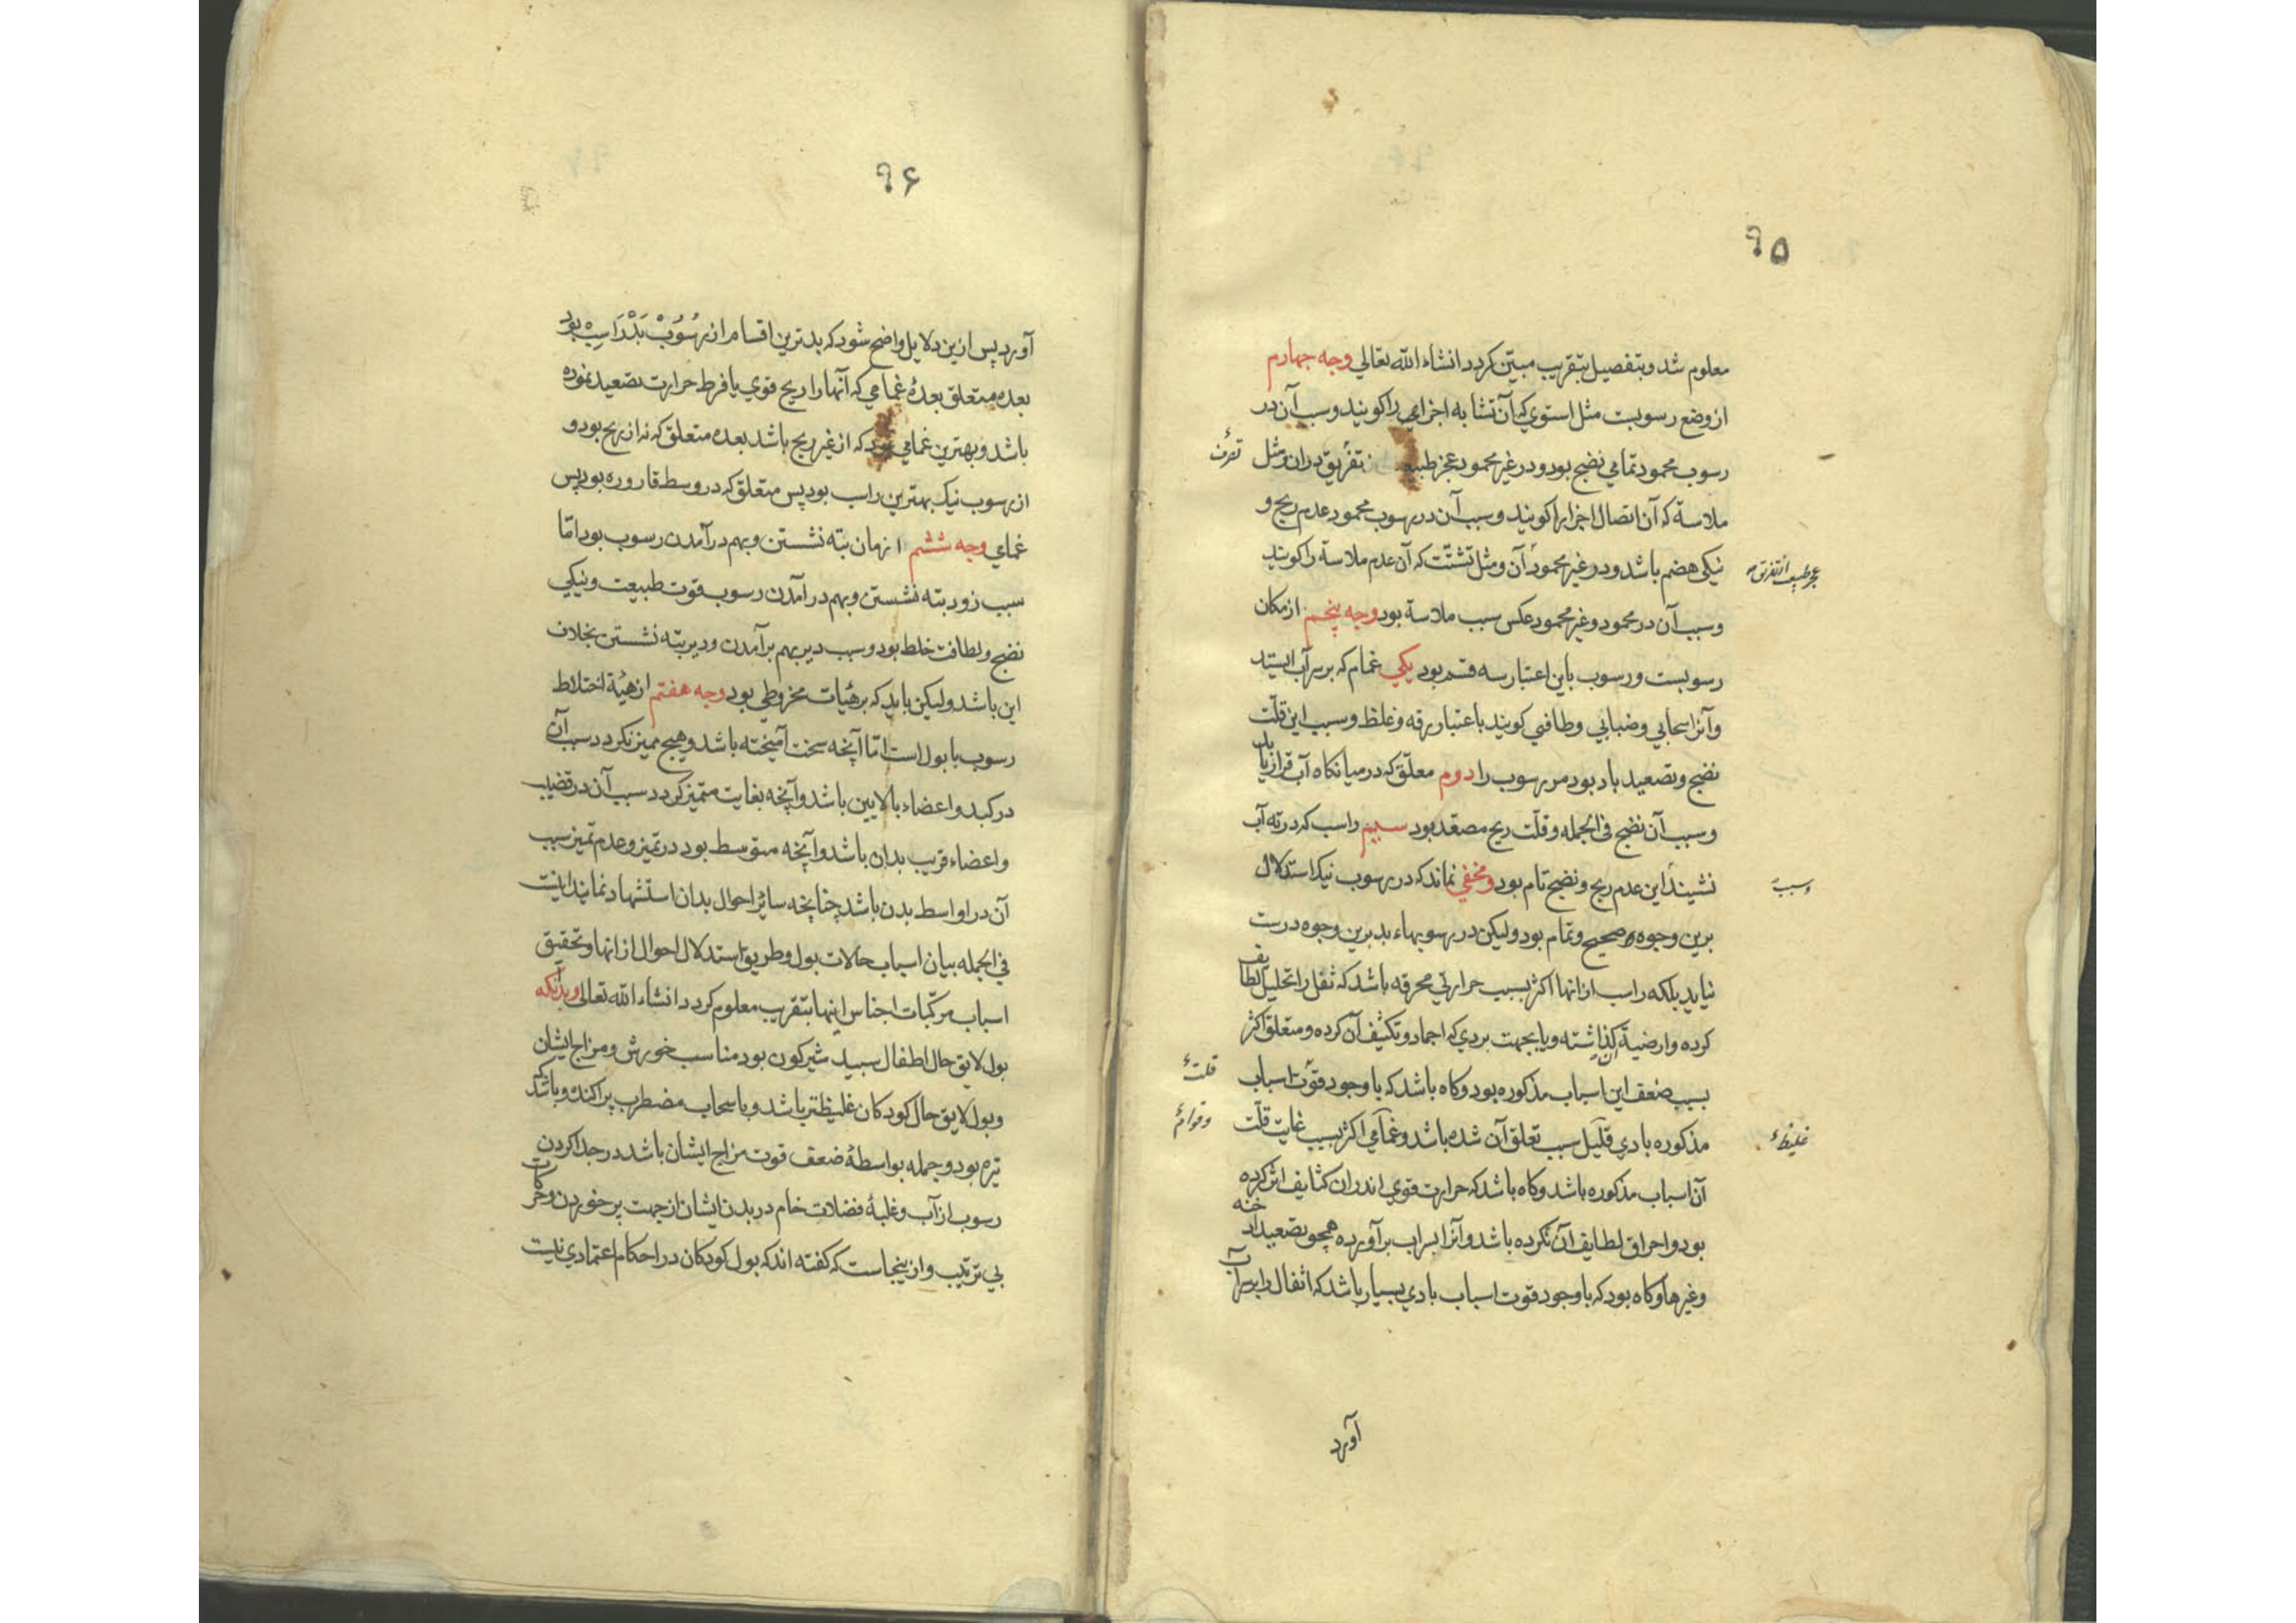 ۹۵
معلوم شد و بتفصیل بتقریب مبیّن کردد انشاء الله تعالی وجه چهارم
از وضع رسوبست مثل استوی که آن تشابه اجزای را کویند و سبب آن در
رسوب محمود تمامی نضج بود و در غیر محمود عجز طبیعت تفریق دران و مثل
تصرف
ملاسة که آن اتصال اجزا را کویند و سبب آن در رسوب محمود عدم ریح و
نیکی هضم باشد و در غیر محمود آن و مثل تشتّت که آن عدم ملاسة را کویند
عجز طبیعت از تفریق
و سبب آن در محمود و غیر محمود عکس سبب ملاسة بود وجه پنجم از مکان
رسوبست و رسوب باین اعتبار سه قسم بود یکی غمام که بر سر آب ایستد
و آنرا سحابی و ضبابی و طافی کویند باعتبار رقه و غلظ و سبب این قلّت
نضج و تصعید باد بود مر رسوب را دوم معلّق که در میانکاه آب قرار یابد
و سبب آن نضج فی الجمله و قلّت ریح مصعّد بود سیم راسب که در ته آب
نشیند این عدم ریح و نضج تام بود و مخفی نماند که در رسوب نیک استدلال
و سبب
برین وجوه صحیح و تمام بود و لیکن در رسوبهاء بد برین وجوه درست
نیاید بلکه راسب از انها اکثر بسبب حرارتی محرقه باشد که ثفل را تحلیل لطایف
کرده و ارضیة کذاشته و یا بجهت بردی که اجماد و تکثیف آن کرده و متعلق اکثر
بسبب ضعف این اسباب مذکوره بود و کاه باشد که با وجود قوّت اسباب
قلت
مذکوره بادی قلیل سبب تعلق آن شده باشد و غمامی اکثر بسبب غایت قلّت
غلیظ
و قوام
آن اسباب مذکوره باشد و کاه باشد که حرارت قوی اندران کثایف اثر کرده
بود و احراق لطایف آن نکرده باشد و آنرا بر سر آب برآورده همچو تصعید ادخنه
و غیرها و کاه بود که با وجود قوت اسباب بادی بسیار باشد که اثفال را بر سر آب
آورد
۹۶
آورد پس ازین دلایل واضح شود که بدترین اقسام از رسوب بد راسب بود
بعده متعلق بعده غمامی که آنها را ریح قوی یا فرط حرارت تصعید نموده
باشد و بهترین غمامی بود که از غیر ریح باشد بعده متعلق که نه از ریح بود و
از رسوب نیک بهترین راسب بود پس متعلق که در وسط قاروره بود پس
غمامی وجه ششم از زمان بته نشستن و بهم درآمدن رسوب بود امّا
سبب زود بته نشستن و بهم در آمدن رسوب قوت طبیعت و نیکی
نضج و لطافت خلط بود و سبب دیر بهم برآمدن و دیر بته نشستن بخلاف
این باشد و لیکن باید که بر هیات مخروطی بود وجه هفتم از هیئة اختلاط
رسوب با بول است امّا آنچه سخت آمیخته باشد و هیچ ممیز نکردد سبب آن
در کبد و اعضاء بالایین باشد و آنچه بغایت متمیز کردد سبب آن در قضیب
و اعضاء قریب بدان باشد و آنچه متوسط بود در تمیز و عدم تمیز سبب
آن در اواسط بدن باشد چنانچه سائر احوال بدان استشهاد نماید اینست
فی الجمله بیان اسباب حالات بول و طریق استدلال احوال از انها و تحقیق
اسباب مرکّبات اجناس اینها بتقریب معلوم کردد انشاء الله تعالی و بدانکه
بول لایق حال اطفال سپید شیرکون بود مناسب خورش و مزاج ایشان
و بول لایق حال کودکان غلیظتر باشد و با سحاب مضطرب پراکنده و باشد که
تیره بود و جمله بواسطهٔ ضعف قوت مزاج ایشان باشد در جدا کردن
رسوب از آب و غلبهٔ فضلات خام در بدن ایشان از جهت پر خوردن و حرکات
بی ترتیب و از ینجاست که کفته اند که بول کودکان در احکام اعتمادی نیست